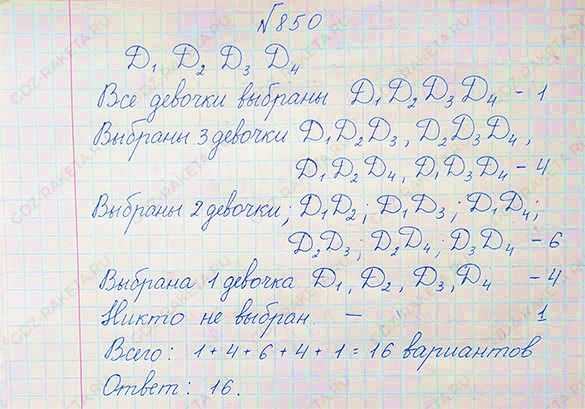 №850
Д₁ Д₂ Д₃ Д₄
Все девочки выбраны Д₁Д₂Д₃Д₄ – 1
Выбраны 3 девочки Д₁Д₂Д₃, Д₂Д₃Д₄,
Д₁Д₂Д₄, Д₁Д₃Д₄ – 4
Выбраны 2 девочки; Д₁Д₂; Д₁Д₃; Д₁Д₄;
Д₂Д₃; Д₂Д₄; Д₃Д₄ – 6
Выбрана 1 девочка Д₁, Д₂, Д₃, Д₄ – 4
Никто не выбран. – 1
Всего: 1+4+6+4+1=16 вариантов
Ответ: 16.
GDZ-RAKETA.RU